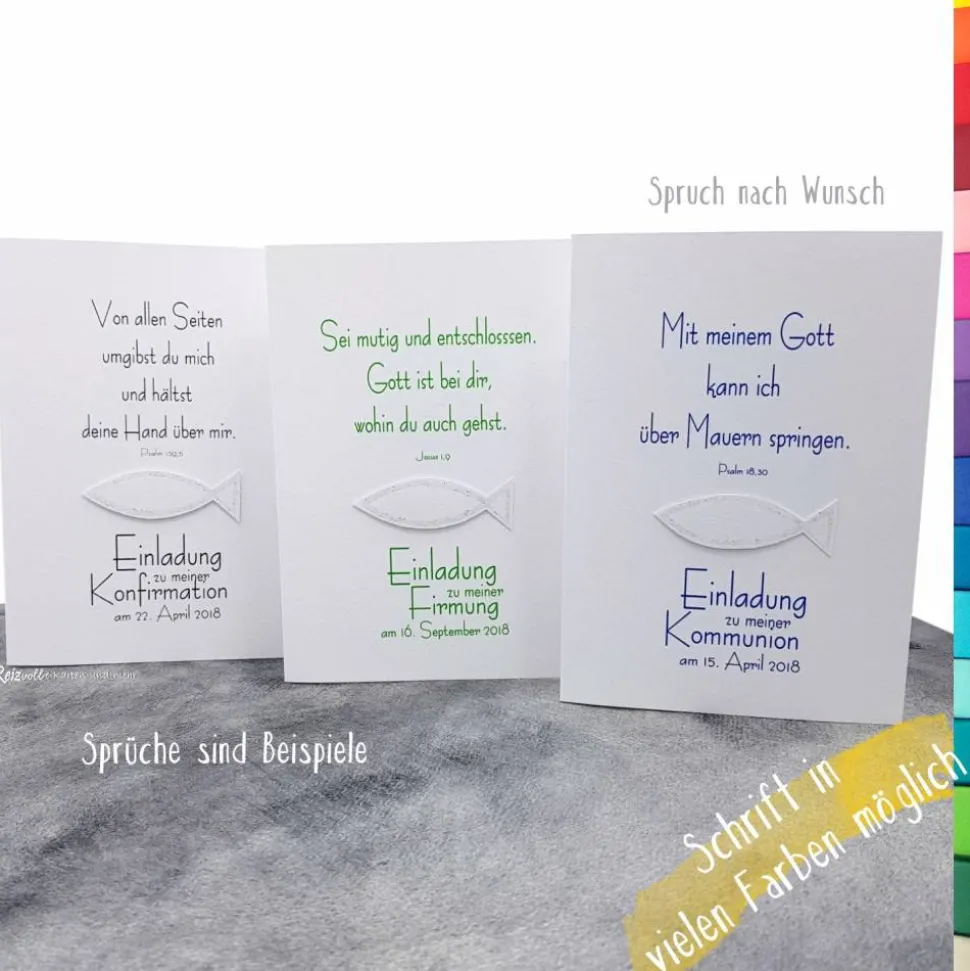 Spruch nach Wunsch
Von allen Seiten
umgibst du mich
und hältst
deine Hand über mir.
Psalm 139,5
Einladung
zu meiner
Konfirmation
am 22. April 2018
Sei mutig und entschlosssen.
Gott ist bei dir,
wohin du auch gehst.
Josua 1,9
Einladung
zu meiner
Firmung
am 16. September 2018
Mit meinem Gott
kann ich
über Mauern springen.
Psalm 18,30
Einladung
zu meiner
Kommunion
am 15. April 2018
Reizvolle Karten und mehr
Sprüche sind Beispiele
Schrift in
vielen Farben möglich